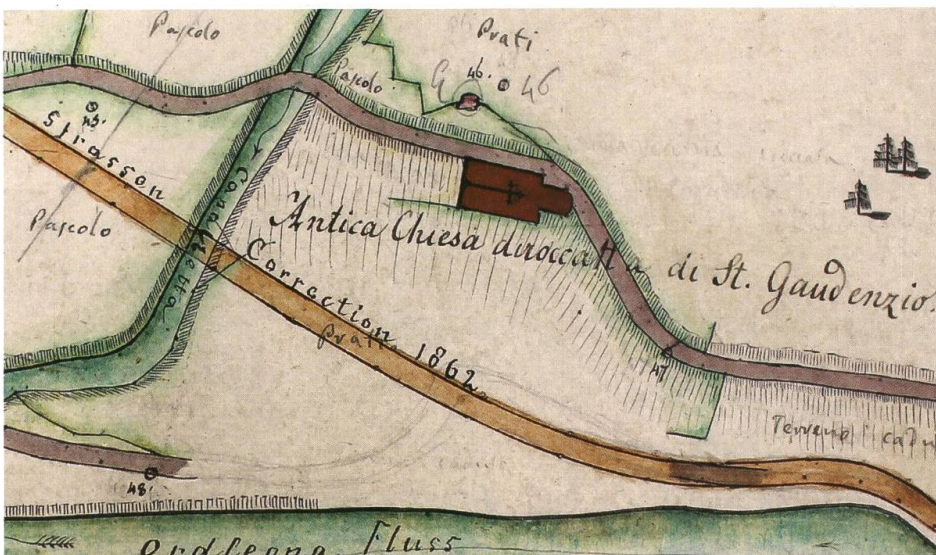 Pascolo
Prati
46.
46
Pascolo
45.
Strassen
Pascolo
Canaletta
Antica Chiesa diroccatta di St. Gaudenzio.
Correction 1862
Prati
47
Terreno
48.
Ordlegna Fluss